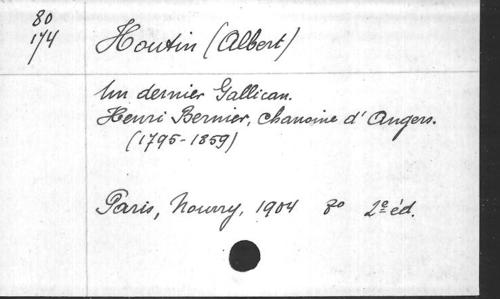 80
174
Houtin (Albert)
Un dernier Gallican.
Henri Bernier, chanoine d'Angers.
(1795-1859)
Paris, Nourry, 1904 8o 2e éd.